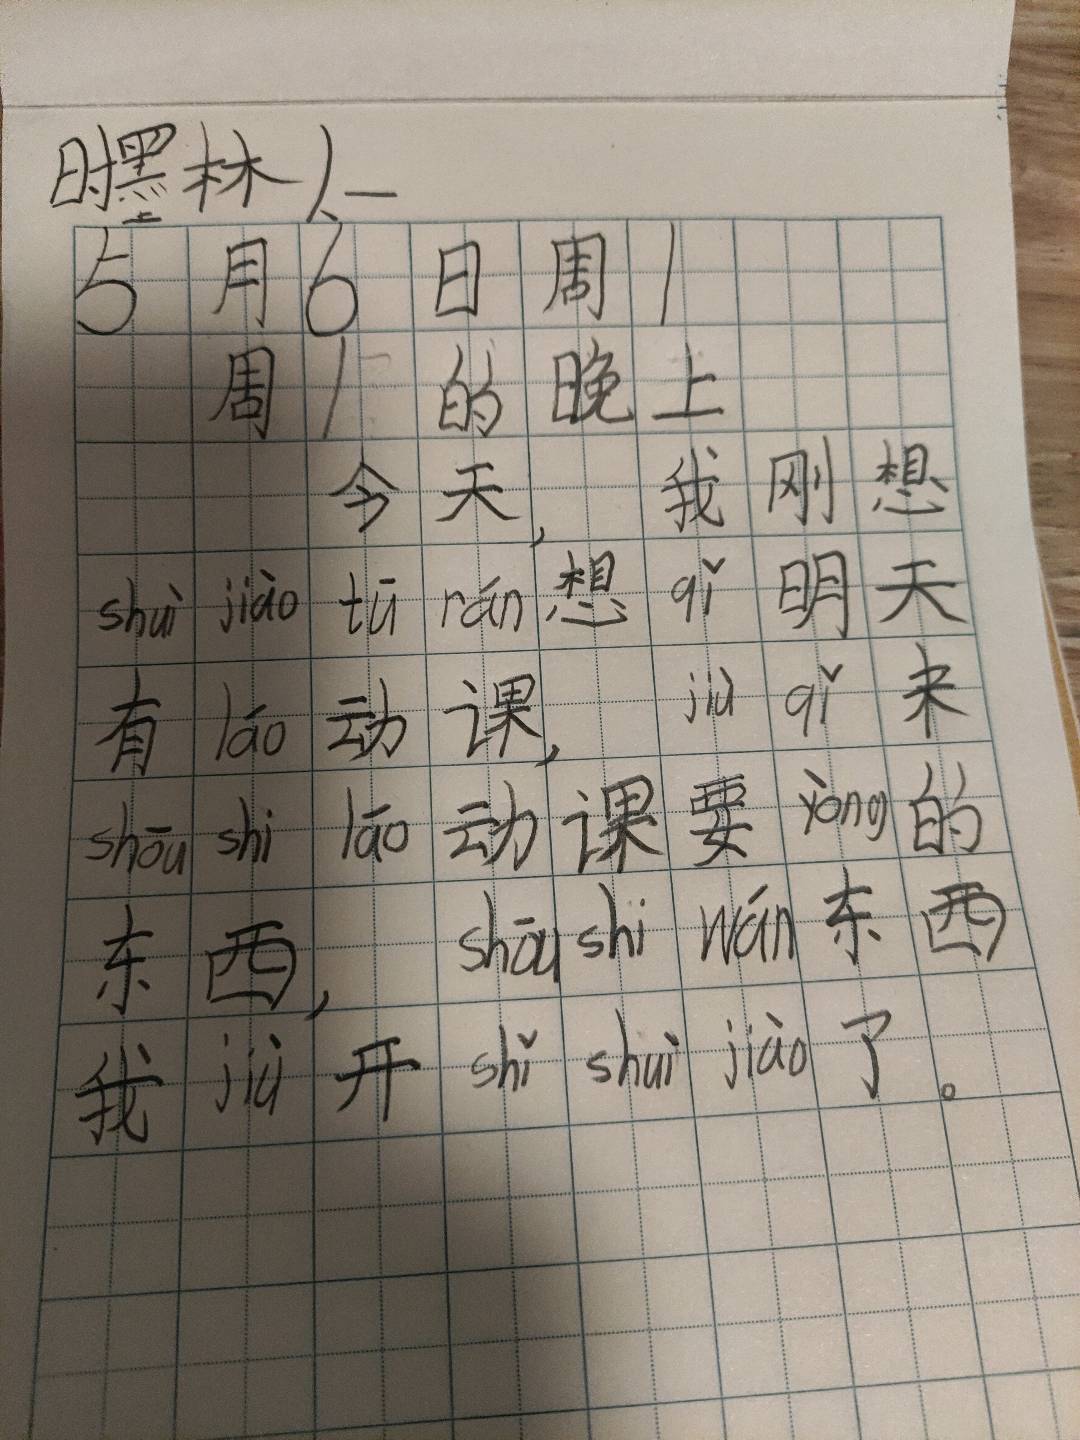 5月6日周1
周1的晚上
今天,我刚想
shuì jiào tū rán 想 qǐ 明天
有 láo 动课, jiù qǐ 来
shōu shi láo 动课要 yòng 的
东西, shōu shi wán 东西
我 jiù 开 shǐ shuì jiào 了。